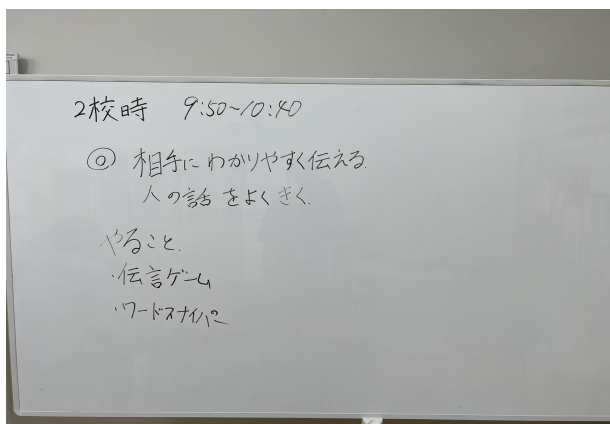 2校時 9:50~10:40
◎ 相手にわかりやすく伝える.
人の話をよくきく.
やること.
・伝言ゲーム
・ワードスナイパー